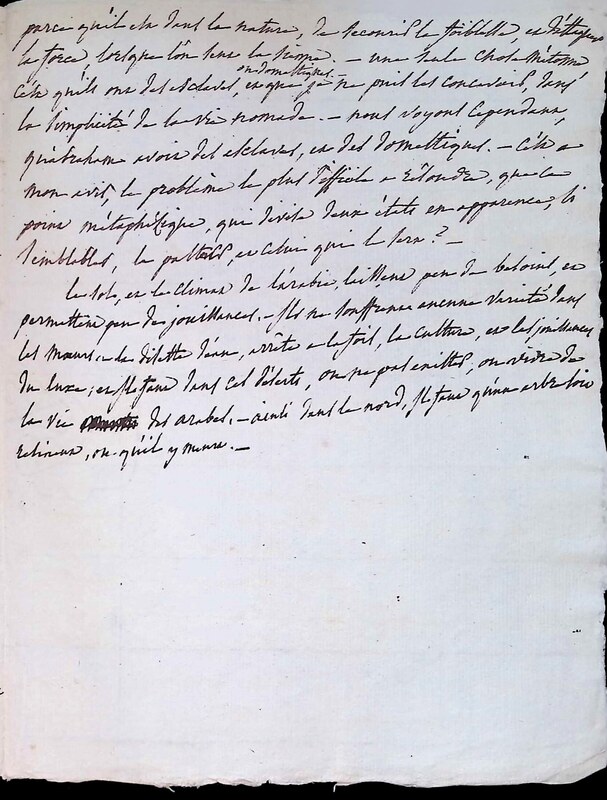 parce qu'il est dans la nature, de secourir la foiblesse, et
la force, lorsque l'on sent la sienne. – une seule chose m'étonne
ou domestiques. –
c'est qu'ils ont des esclaves, et que je ne puis les concevoir, dans
la simplicité de la vie nomade. – nous voyons cependant,
qu'abraham avoit des esclaves, et des domestiques. – c'est a
mon avis, le problême le plus difficile a résoudre, que ce
point métaphisique, qui divise deux états en apparence, si
semblables, le pasteur, et celui qui le sert ? –
le sol, et le climat de l'arabie, laissent peu de besoins, et
permettent peu de jouissances. – Ils ne souffrent aucune variété dans
les mœurs. – la disette d'eau, arrête a la fois, la culture, et les jouissances
du luxe ; et il faut dans ces déserts, ou ne pas exister, ou vivre de
la vie des arabes. – ainsi dans le nord, il faut qu'un arbre soit
résineux, ou qu'il y meure. –